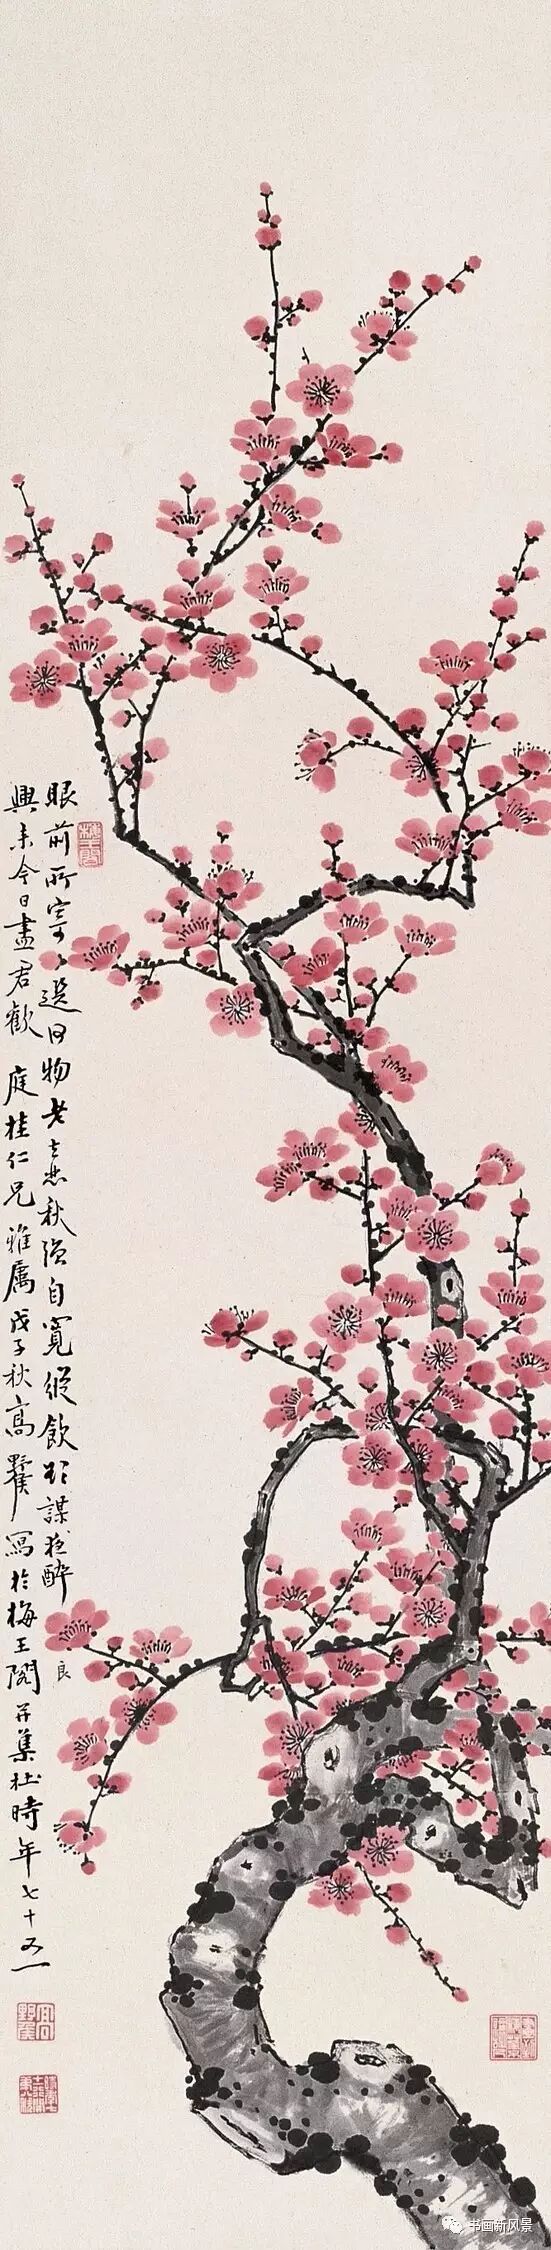 眼前所寄選何物老去悲秋強自寬縱飲欲謀夜醉
良
興來今日盡君歡 庭桂仁兄雅屬戊子秋高野侯寫於梅王閣并集杜時年七十又一
梅王閣
高
野侯
书画新风景